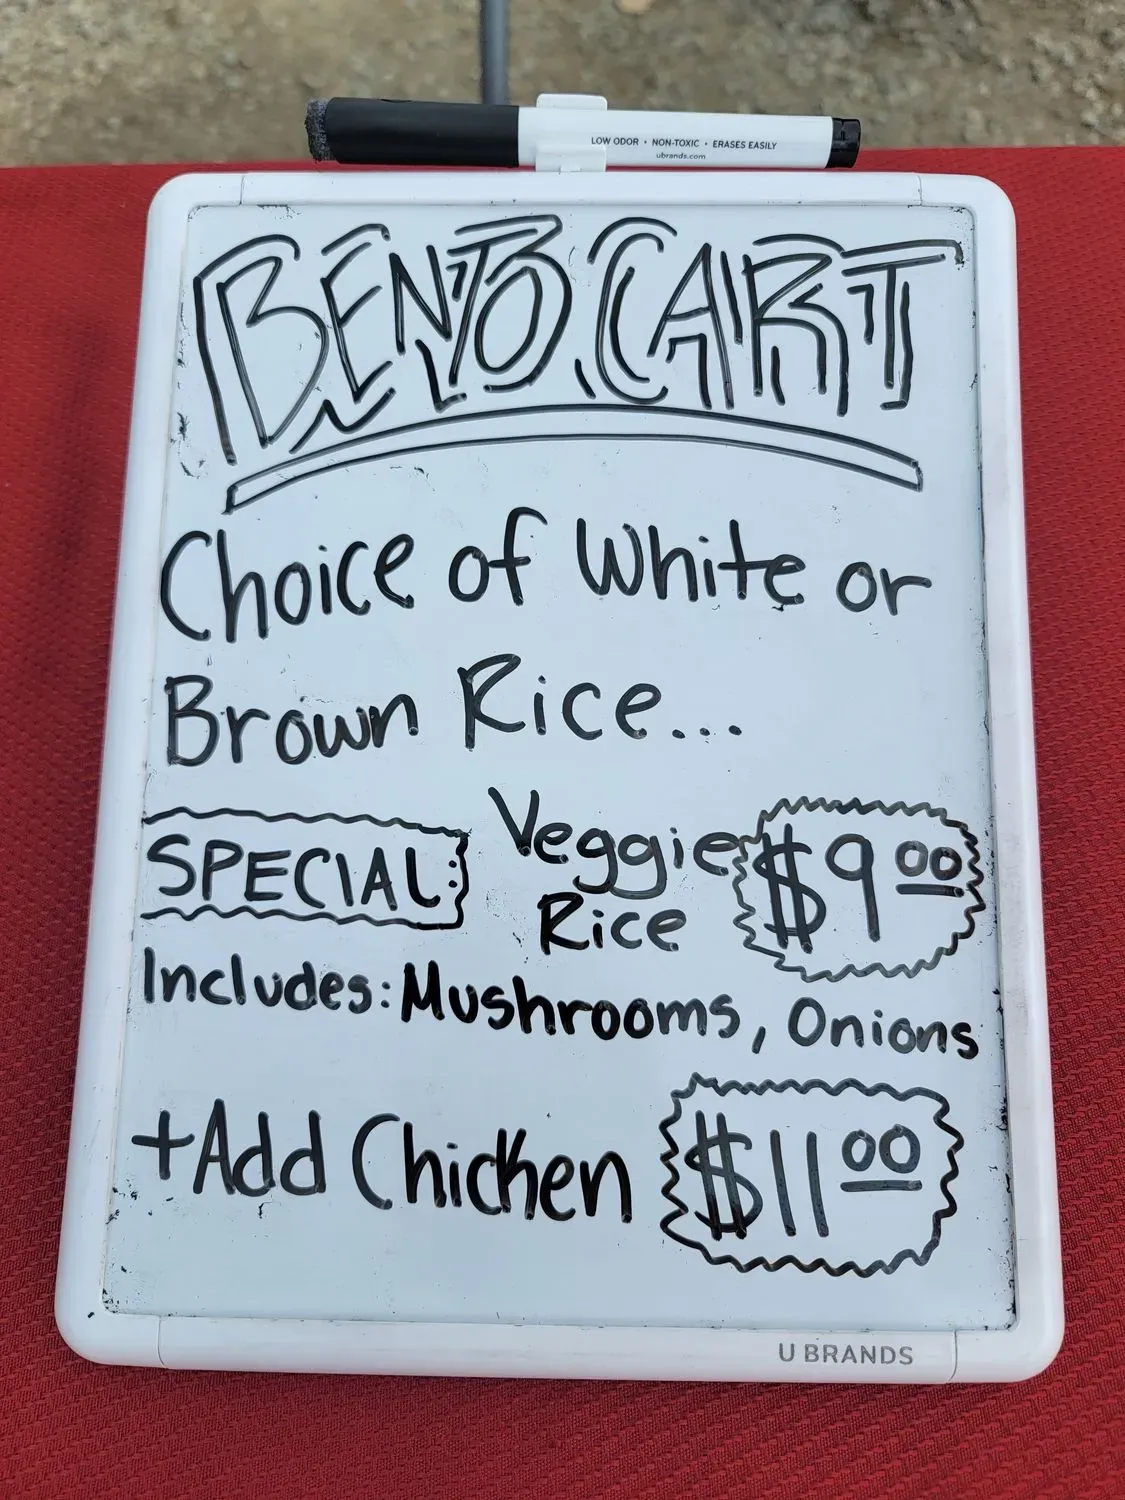 LOW ODOR • NON-TOXIC • ERASES EASILY
ubrands.com
BENTO CART
Choice of White or
Brown Rice...
SPECIAL: Veggie Rice $9.00
Includes: Mushrooms, Onions
+Add Chicken $11.00
U BRANDS